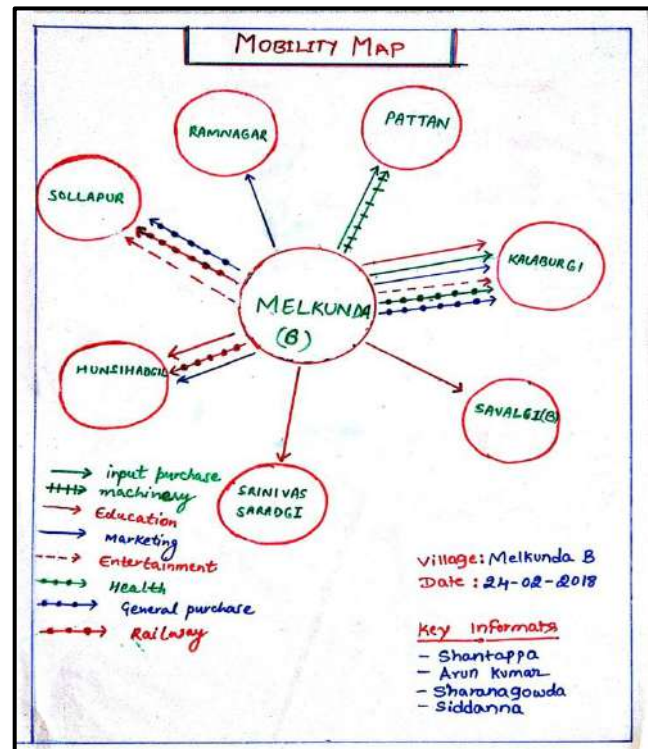 MOBILITY MAP
RAMNAGAR
PATTAN
SOLLAPUR
KALABURGI
MELKUNDA
(B)
HUNSIHADGIL
SAVALGI(B)
SRINIVAS
SARADGI
input purchase
machinery
Education
Marketing
Entertainment
Health
General purchase
Railway
Village: Melkunda B
Date : 24-02-2018
Key Informats
- Shantappa
- Arun Kumar
- Sharanagowda
- Siddanna